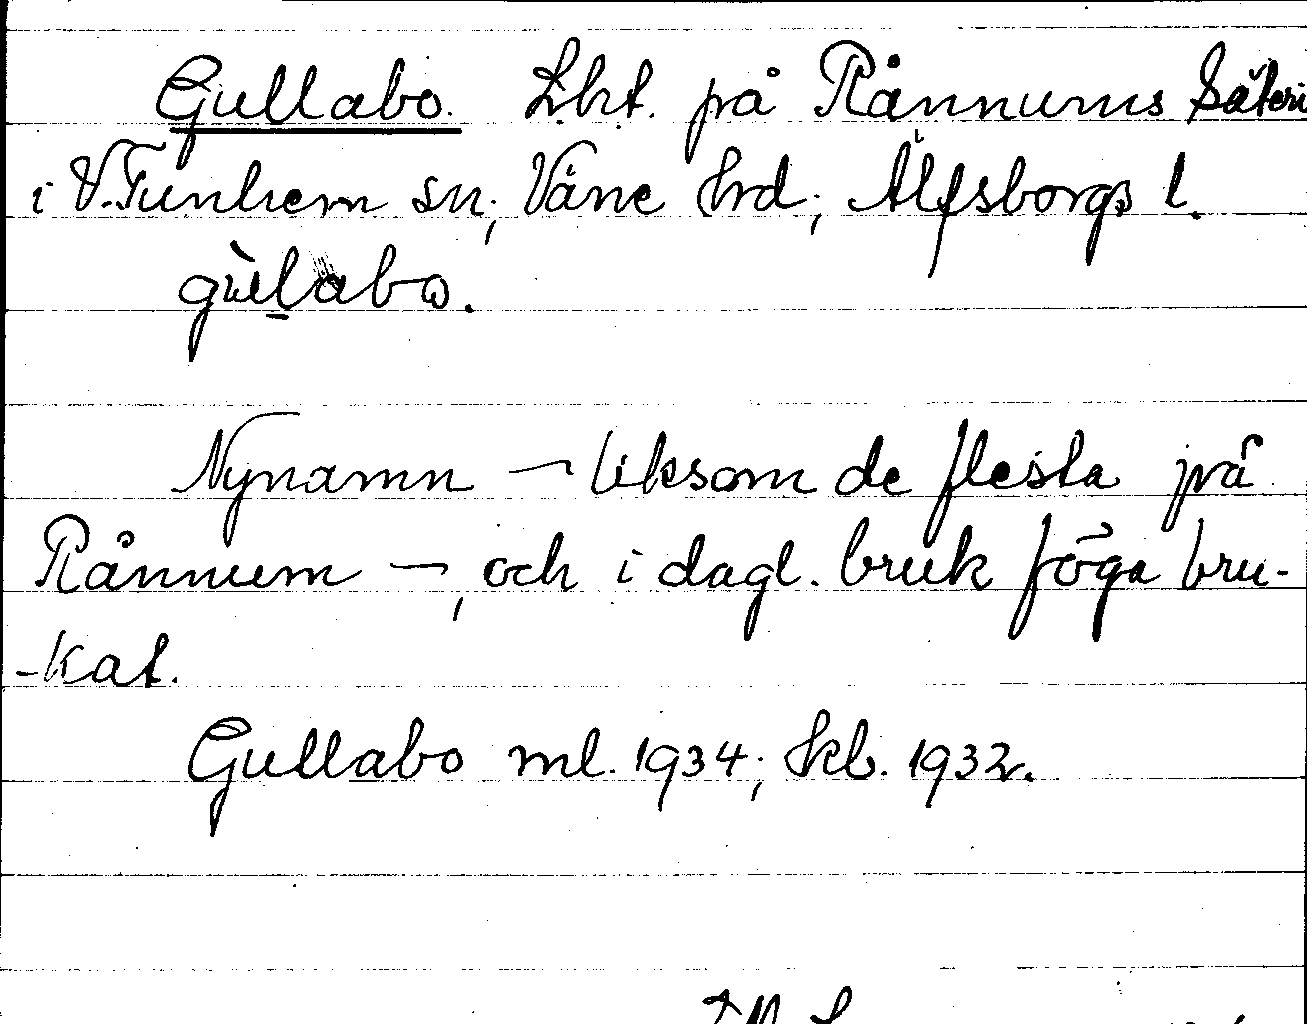 Gullabo. L.ht. på Rånnums Säteri
i V.Tunhem sn; Väne hrd; Älfsborgs l.
gùlabω.
Nynamn — liksom de flesta på
Rånnum —, och i dagl. bruk föga bru-
-kat.
Gullabo ml. 1934; kb. 1932.